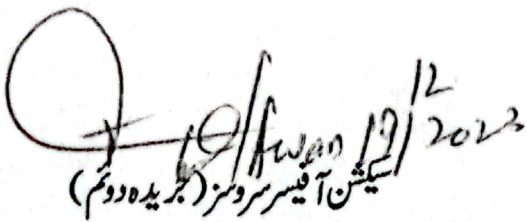 Awan 19/12
2023
سیکشن آفیسر سروسز (جریدہ دوئم)